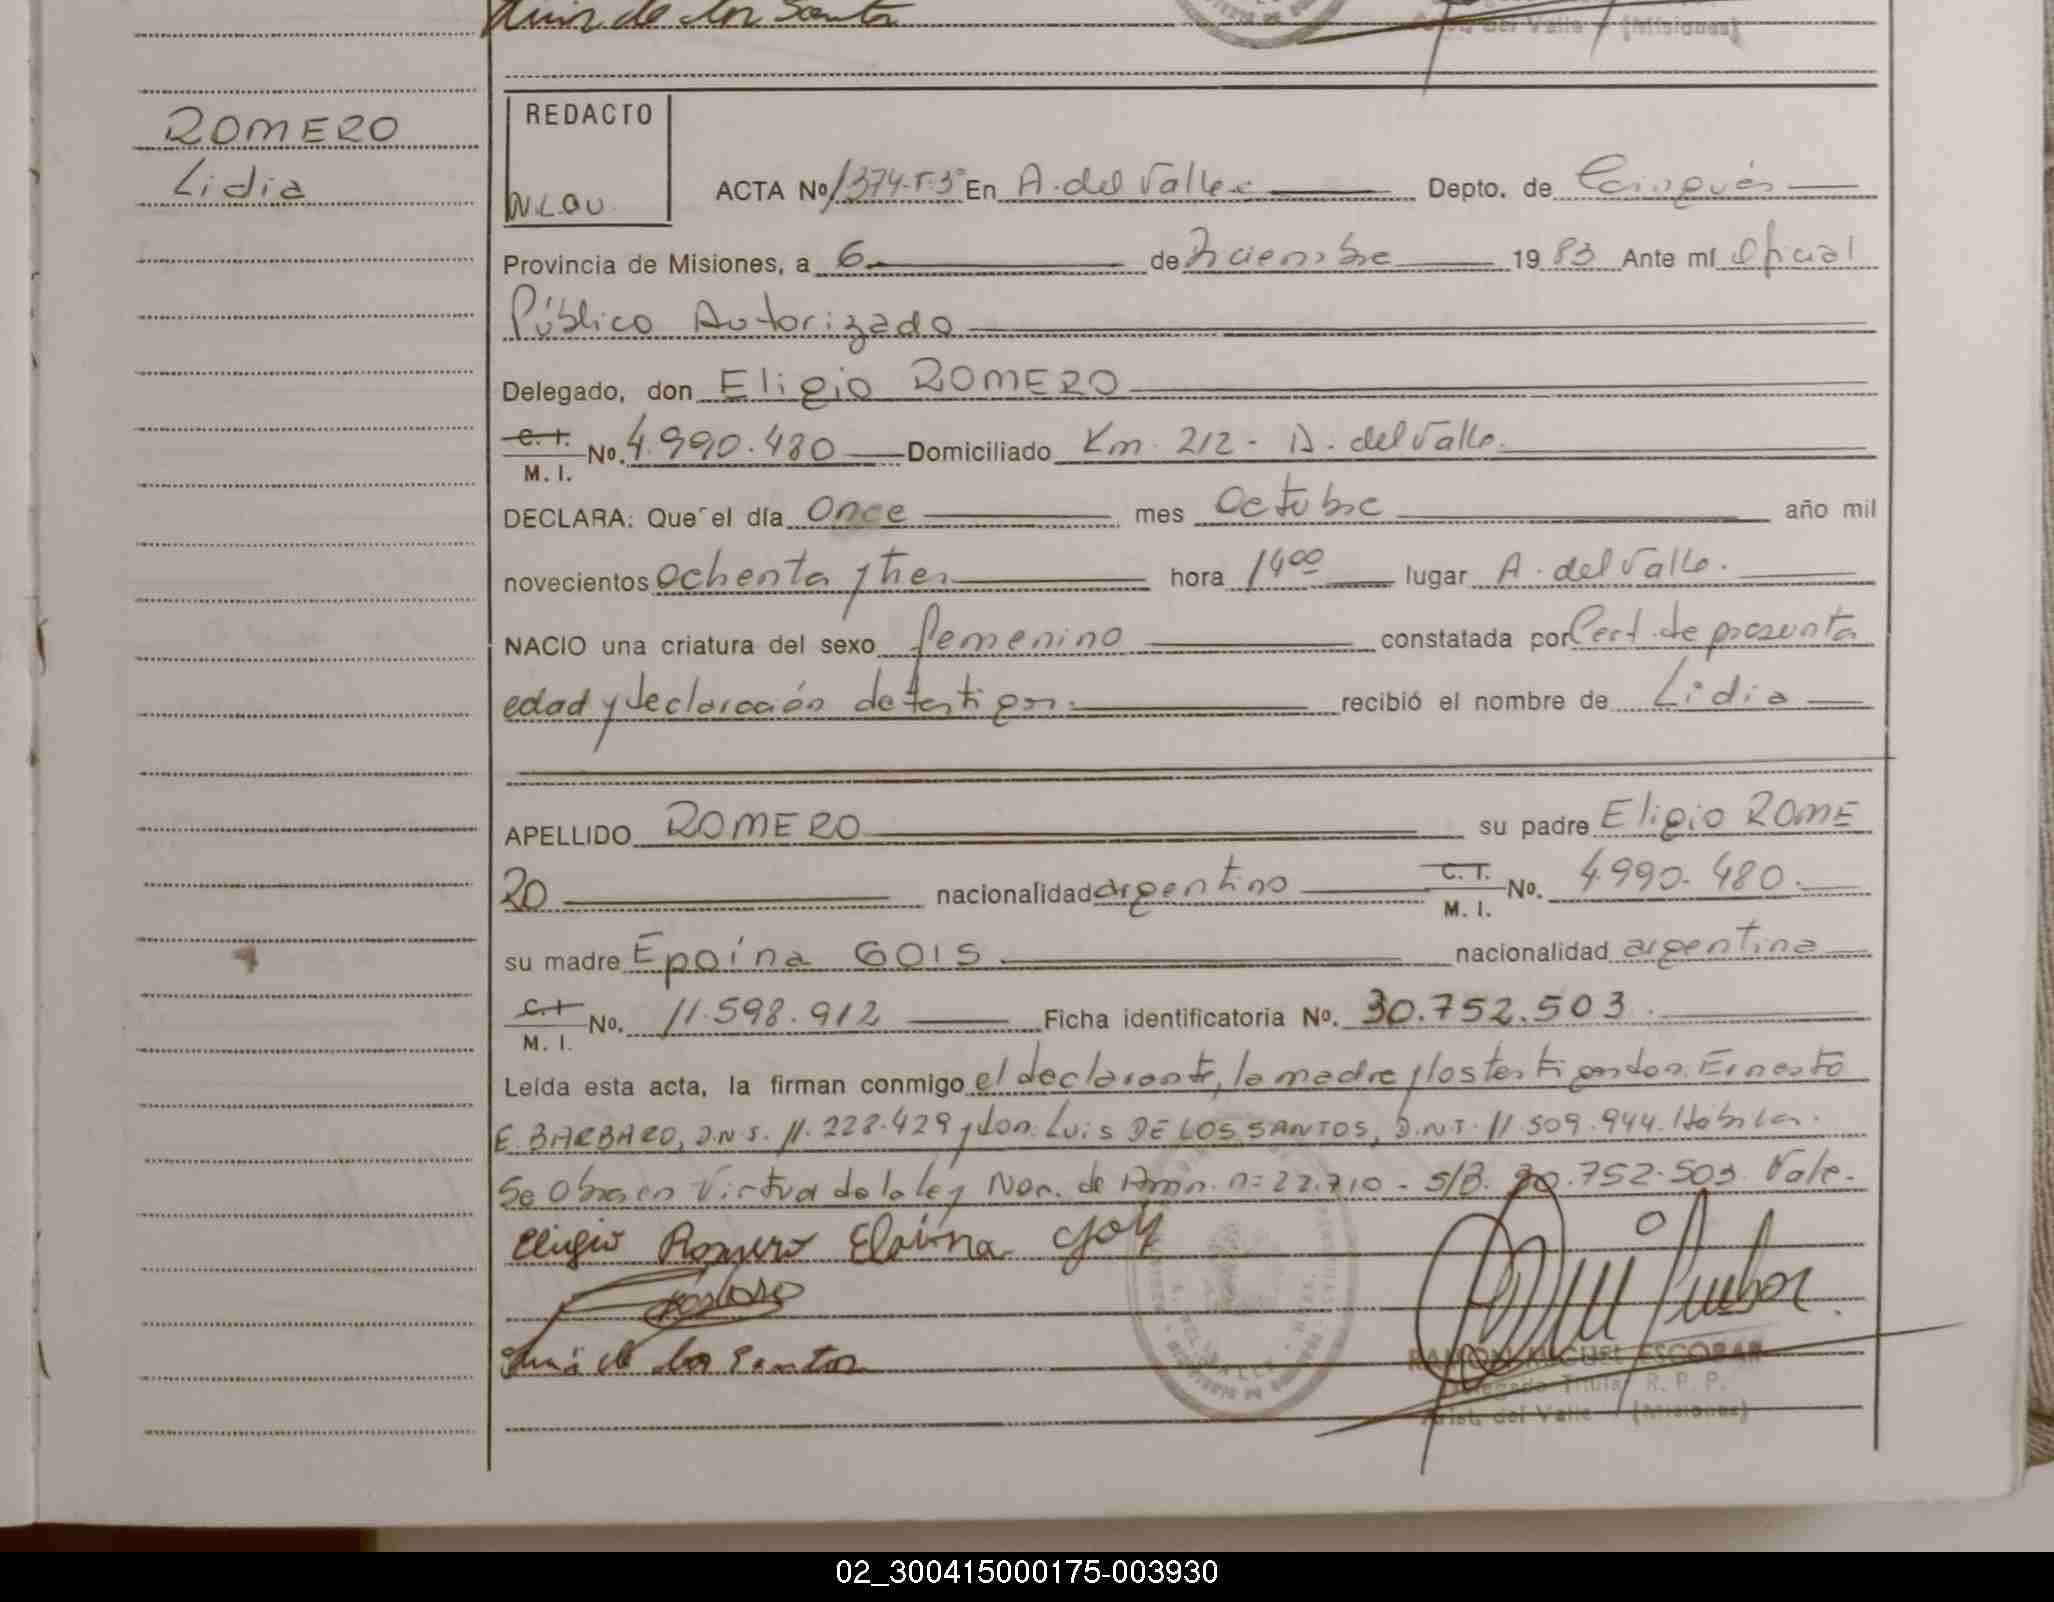 Luis de los Santos
del Valle - (Misiones)
ROMERO
Lidia
REDACTO
ACTA No 1374-T-3º En A. del Valle Depto. de Cainguás
Provincia de Misiones, a 6 de Diciembre 19 83 Ante mí Oficial
Público Autorizado
Delegado, don Eligio ROMERO
C. I. M. I. No. 4.990.480 Domiciliado Km. 212 - A. del Valle.
DECLARA: Que el día Once mes Octubre año mil
novecientos Ochenta y tres hora 14 00 lugar A. del Valle.
NACIO una criatura del sexo femenino constatada por Cert. de presunta
edad y declaración de testigos. recibió el nombre de Lidia
APELLIDO ROMERO su padre Eligio ROME
RO nacionalidad argentino C. I. M. I. No. 4.990.480.
su madre Epoína GOIS nacionalidad argentina
C. I. M. I. No. 11.598.912 Ficha identificatoria No. 30.752.503.
Leída esta acta, la firman conmigo el declarante, la madre y los testigos don. Ernesto
E. BARBARO, D.N.I. 11.228.429 y don. Luis DE LOS SANTOS, D.N.I. 11.509.944. Hábiles.
Se Obra en Virtud de la ley Nac. de Amn. nº 22.710 - S/B. 30.752.503. Vale.
Eligio Romero Eloina goiz
Luis de los Santos
RAMON MIGUEL ESCOBAR
Delegado Titular R. P. P.
Arist. del Valle - (Misiones)
02_300415000175-003930